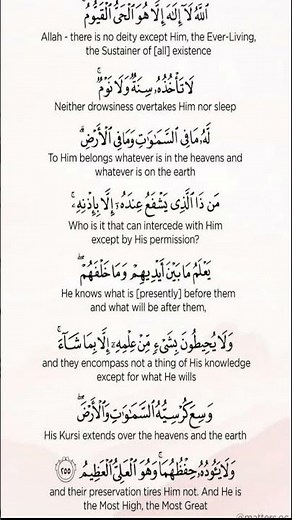 ٱللَّهُ لَآ إِلَٰهَ إِلَّا هُوَ ٱلْحَىُّ ٱلْقَيُّومُ
Allah - there is no deity except Him, the Ever-Living,
the Sustainer of [all] existence
لَا تَأْخُذُهُۥ سِنَةٌ وَلَا نَوْمٌ
Neither drowsiness overtakes Him nor sleep
لَّهُۥ مَا فِى ٱلسَّمَٰوَٰتِ وَمَا فِى ٱلْأَرْضِ
To Him belongs whatever is in the heavens and
whatever is on the earth
مَن ذَا ٱلَّذِى يَشْفَعُ عِندَهُۥٓ إِلَّا بِإِذْنِهِۦ
Who is it that can intercede with Him
except by His permission?
يَعْلَمُ مَا بَيْنَ أَيْدِيهِمْ وَمَا خَلْفَهُمْ
He knows what is [presently] before them
and what will be after them,
وَلَا يُحِيطُونَ بِشَىْءٍ مِّنْ عِلْمِهِۦٓ إِلَّا بِمَا شَآءَ
and they encompass not a thing of His knowledge
except for what He wills
وَسِعَ كُرْسِيُّهُ ٱلسَّمَٰوَٰتِ وَٱلْأَرْضَ
His Kursi extends over the heavens and the earth
وَلَا يَـُٔودُهُۥ حِفْظُهُمَا وَهُوَ ٱلْعَلِىُّ ٱلْعَظِيمُ ٢٥٥
and their preservation tires Him not. And He is
the Most High, the Most Great